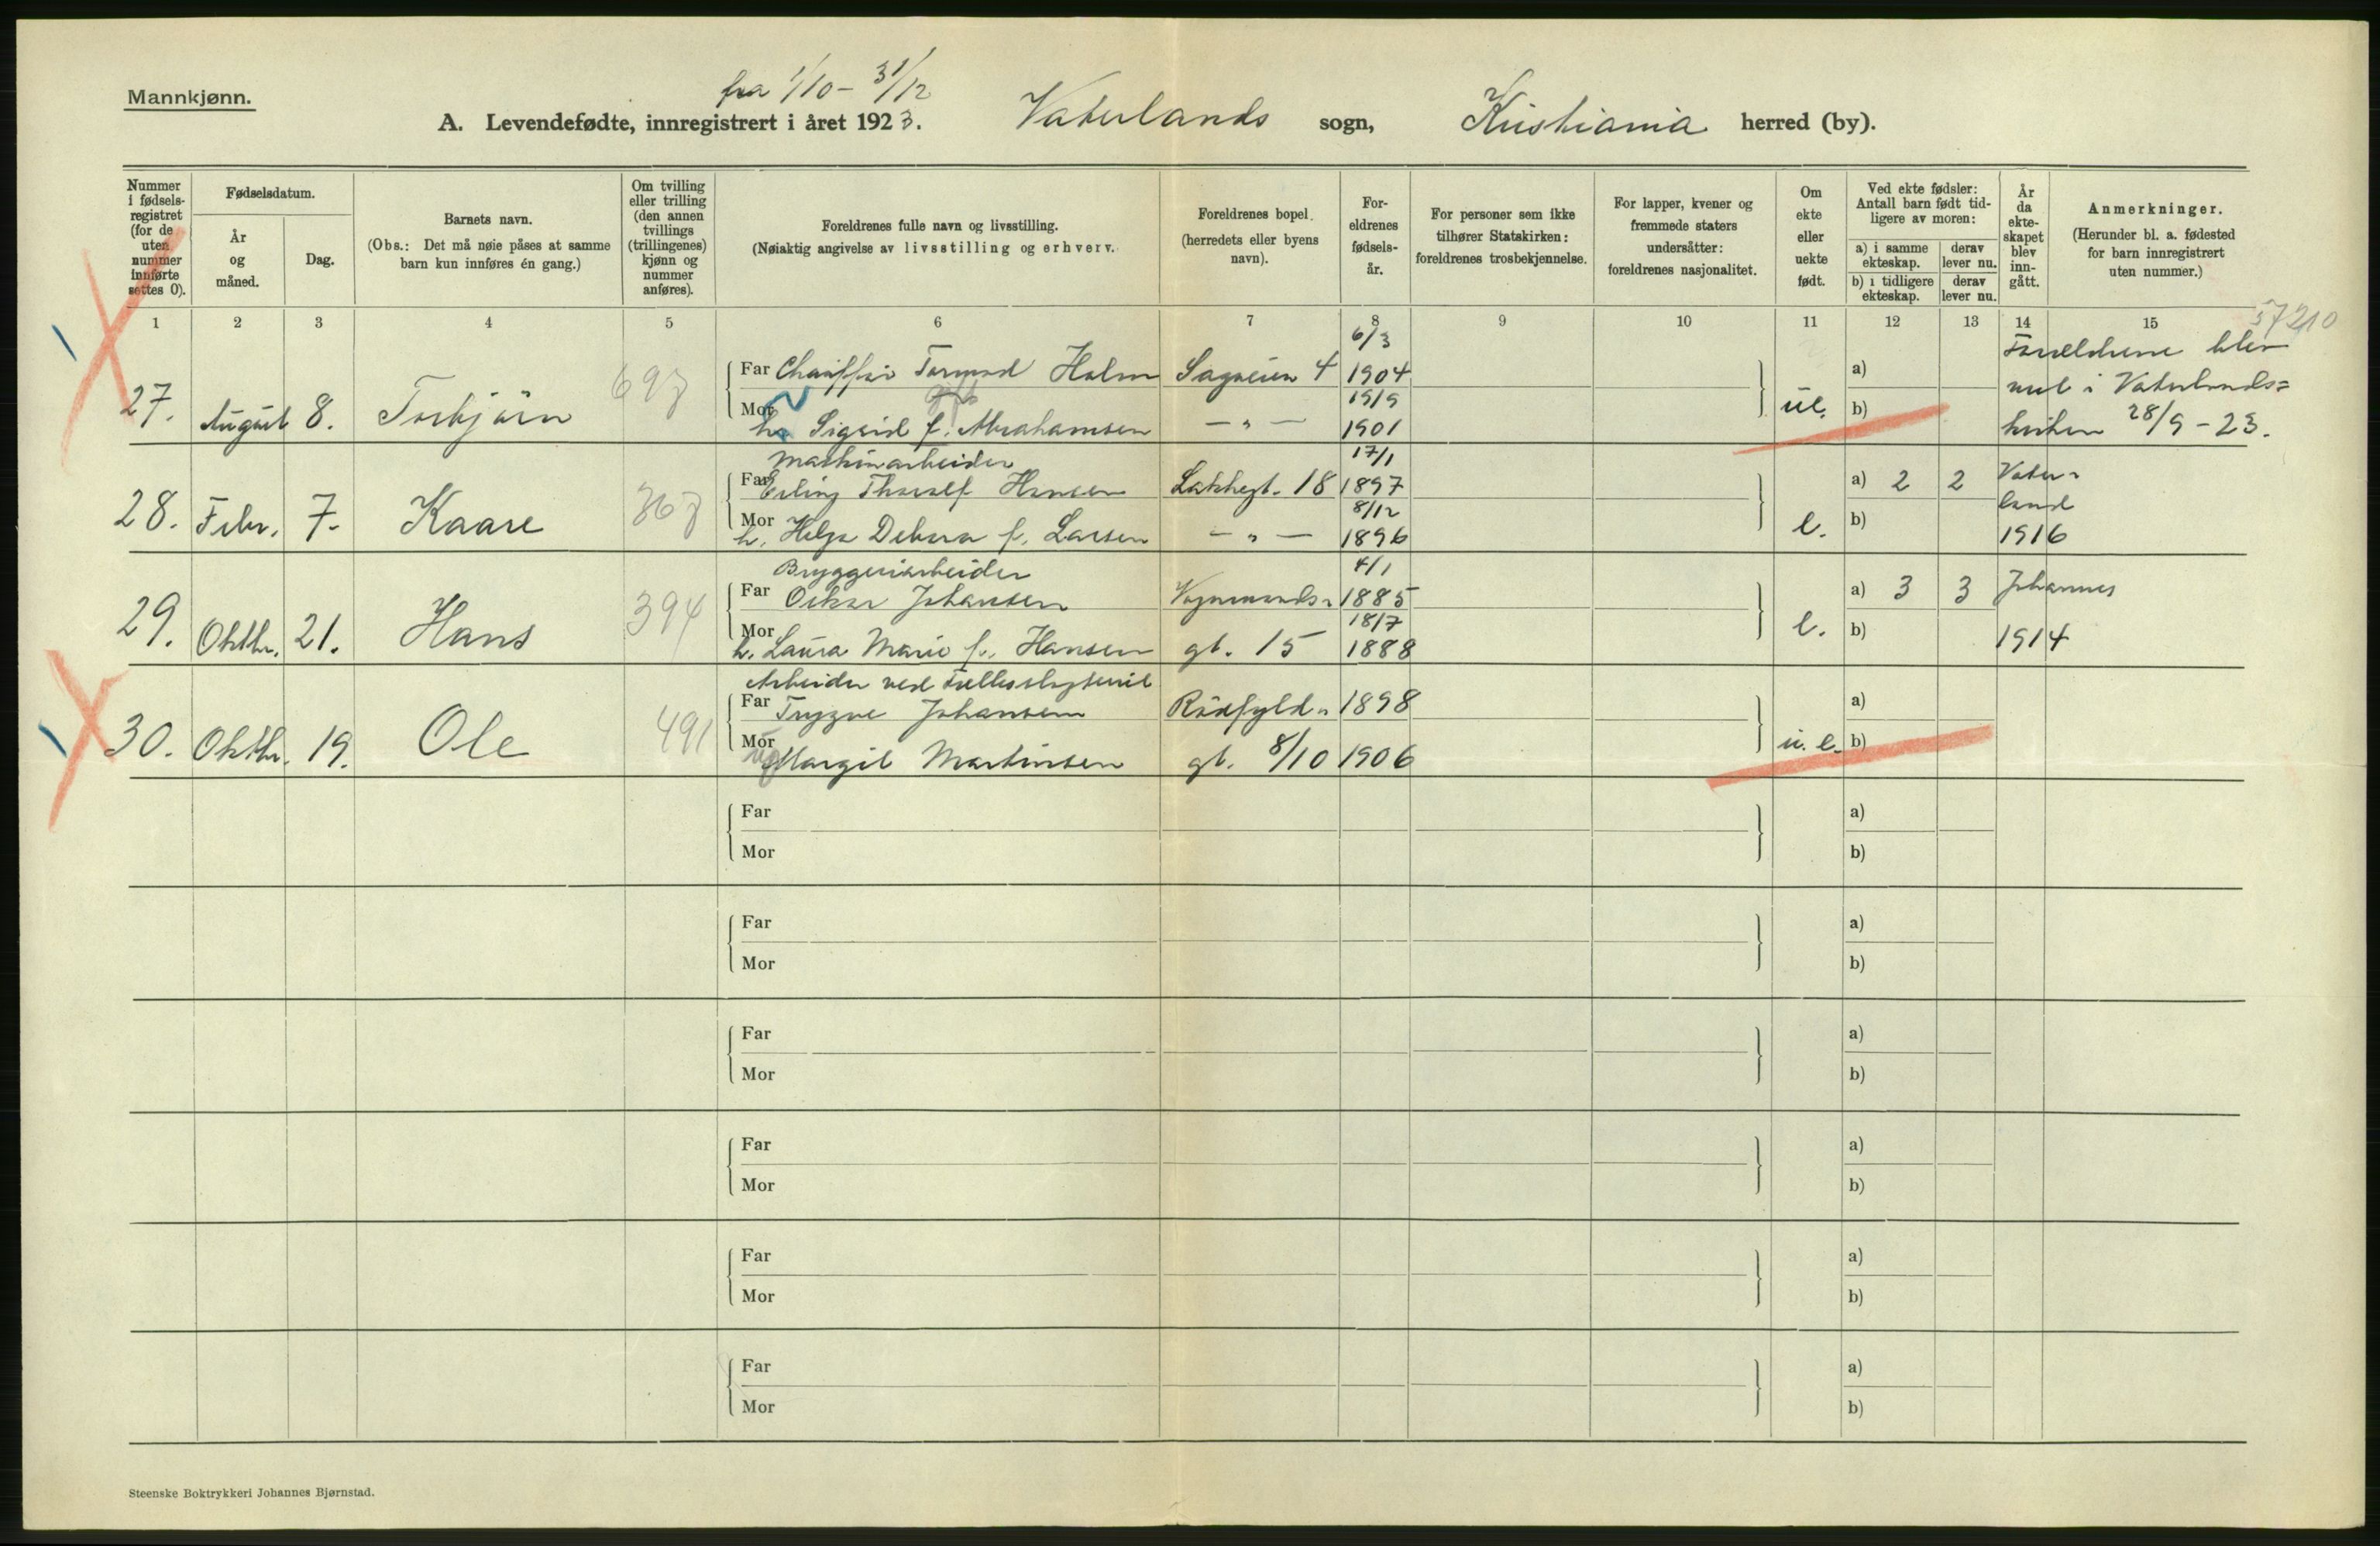 Mannkjønn.
fra 1/10 - 31/12
A. Levendefødte, innregistrert i året 1923. Vaterlands sogn, Kristiania herred (by).
Nummer i fødsels-registret (for de uten nummer innførte settes 0).
Fødselsdatum.
År og måned.
Dag.
Barnets navn.
(Obs.: Det må nøie påses at samme barn kun innføres én gang.)
Om tvilling eller trilling (den annen tvillings (trillingenes) kjønn og nummer anføres).
Foreldrenes fulle navn og livsstilling.
(Nøiaktig angivelse av livsstilling og erhverv.
Foreldrenes bopel.
(herredets eller byens navn).
For-eldrenes fødsels-år.
For personer som ikke tilhører Statskirken: foreldrenes trosbekjennelse.
For lapper, kvener og fremmede staters undersåtter: foreldrenes nasjonalitet.
Om ekte eller uekte født.
Ved ekte fødsler: Antall barn født tid-ligere av moren:
a) i samme ekteskap.
derav lever nu.
b) i tidligere ekteskap.
derav lever nu.
År da ekte-skapet blev inn-gått.
Anmerkninger.
(Herunder bl. a. fødested for barn innregistrert uten nummer.)
1 2 3 4 5 6 7 8 9 10 11 12 13 14 15
57210
27. August 8. Torbjörn 697
Far Chauffør Tormod Holm Sagveien 4 6/3 1904
Mor h. Sigrid f. Abrahamsen — „ — 19/9 1901
u.e. a) b)
Forældrene blev
viet i Vaterlands=
kirken 28/9 - 23.
28. Febr. 7. Kaare 367
Maskinarbeider
Far Erling Thoralf Hansen Lakkegt. 18 17/1 1897
Mor h. Helga Debora f. Larsen — „ — 8/12 1896
e. a) 2 2 b)
Vater-
land
1916
29. Oktbr. 21. Hans 394
Bryggeriarbeider
Far Oskar Johansen Vognmands- 4/1 1885
Mor h. Laura Marie f. Hansen gt. 15 18/7 1888
e. a) 3 3 b)
Johannes
1914
30. Oktbr. 19. Ole 491
Arbeider ved Fællesslagteriet
Far Trygve Johansen Rödfyld- 1898
Mor ug Margit Martinsen gt. 8/10 1906
u. e. a) b)
Far
Mor
a)
b)
Far
Mor
a)
b)
Far
Mor
a)
b)
Far
Mor
a)
b)
Far
Mor
a)
b)
Far
Mor
a)
b)
Steenske Boktrykkeri Johannes Bjørnstad.